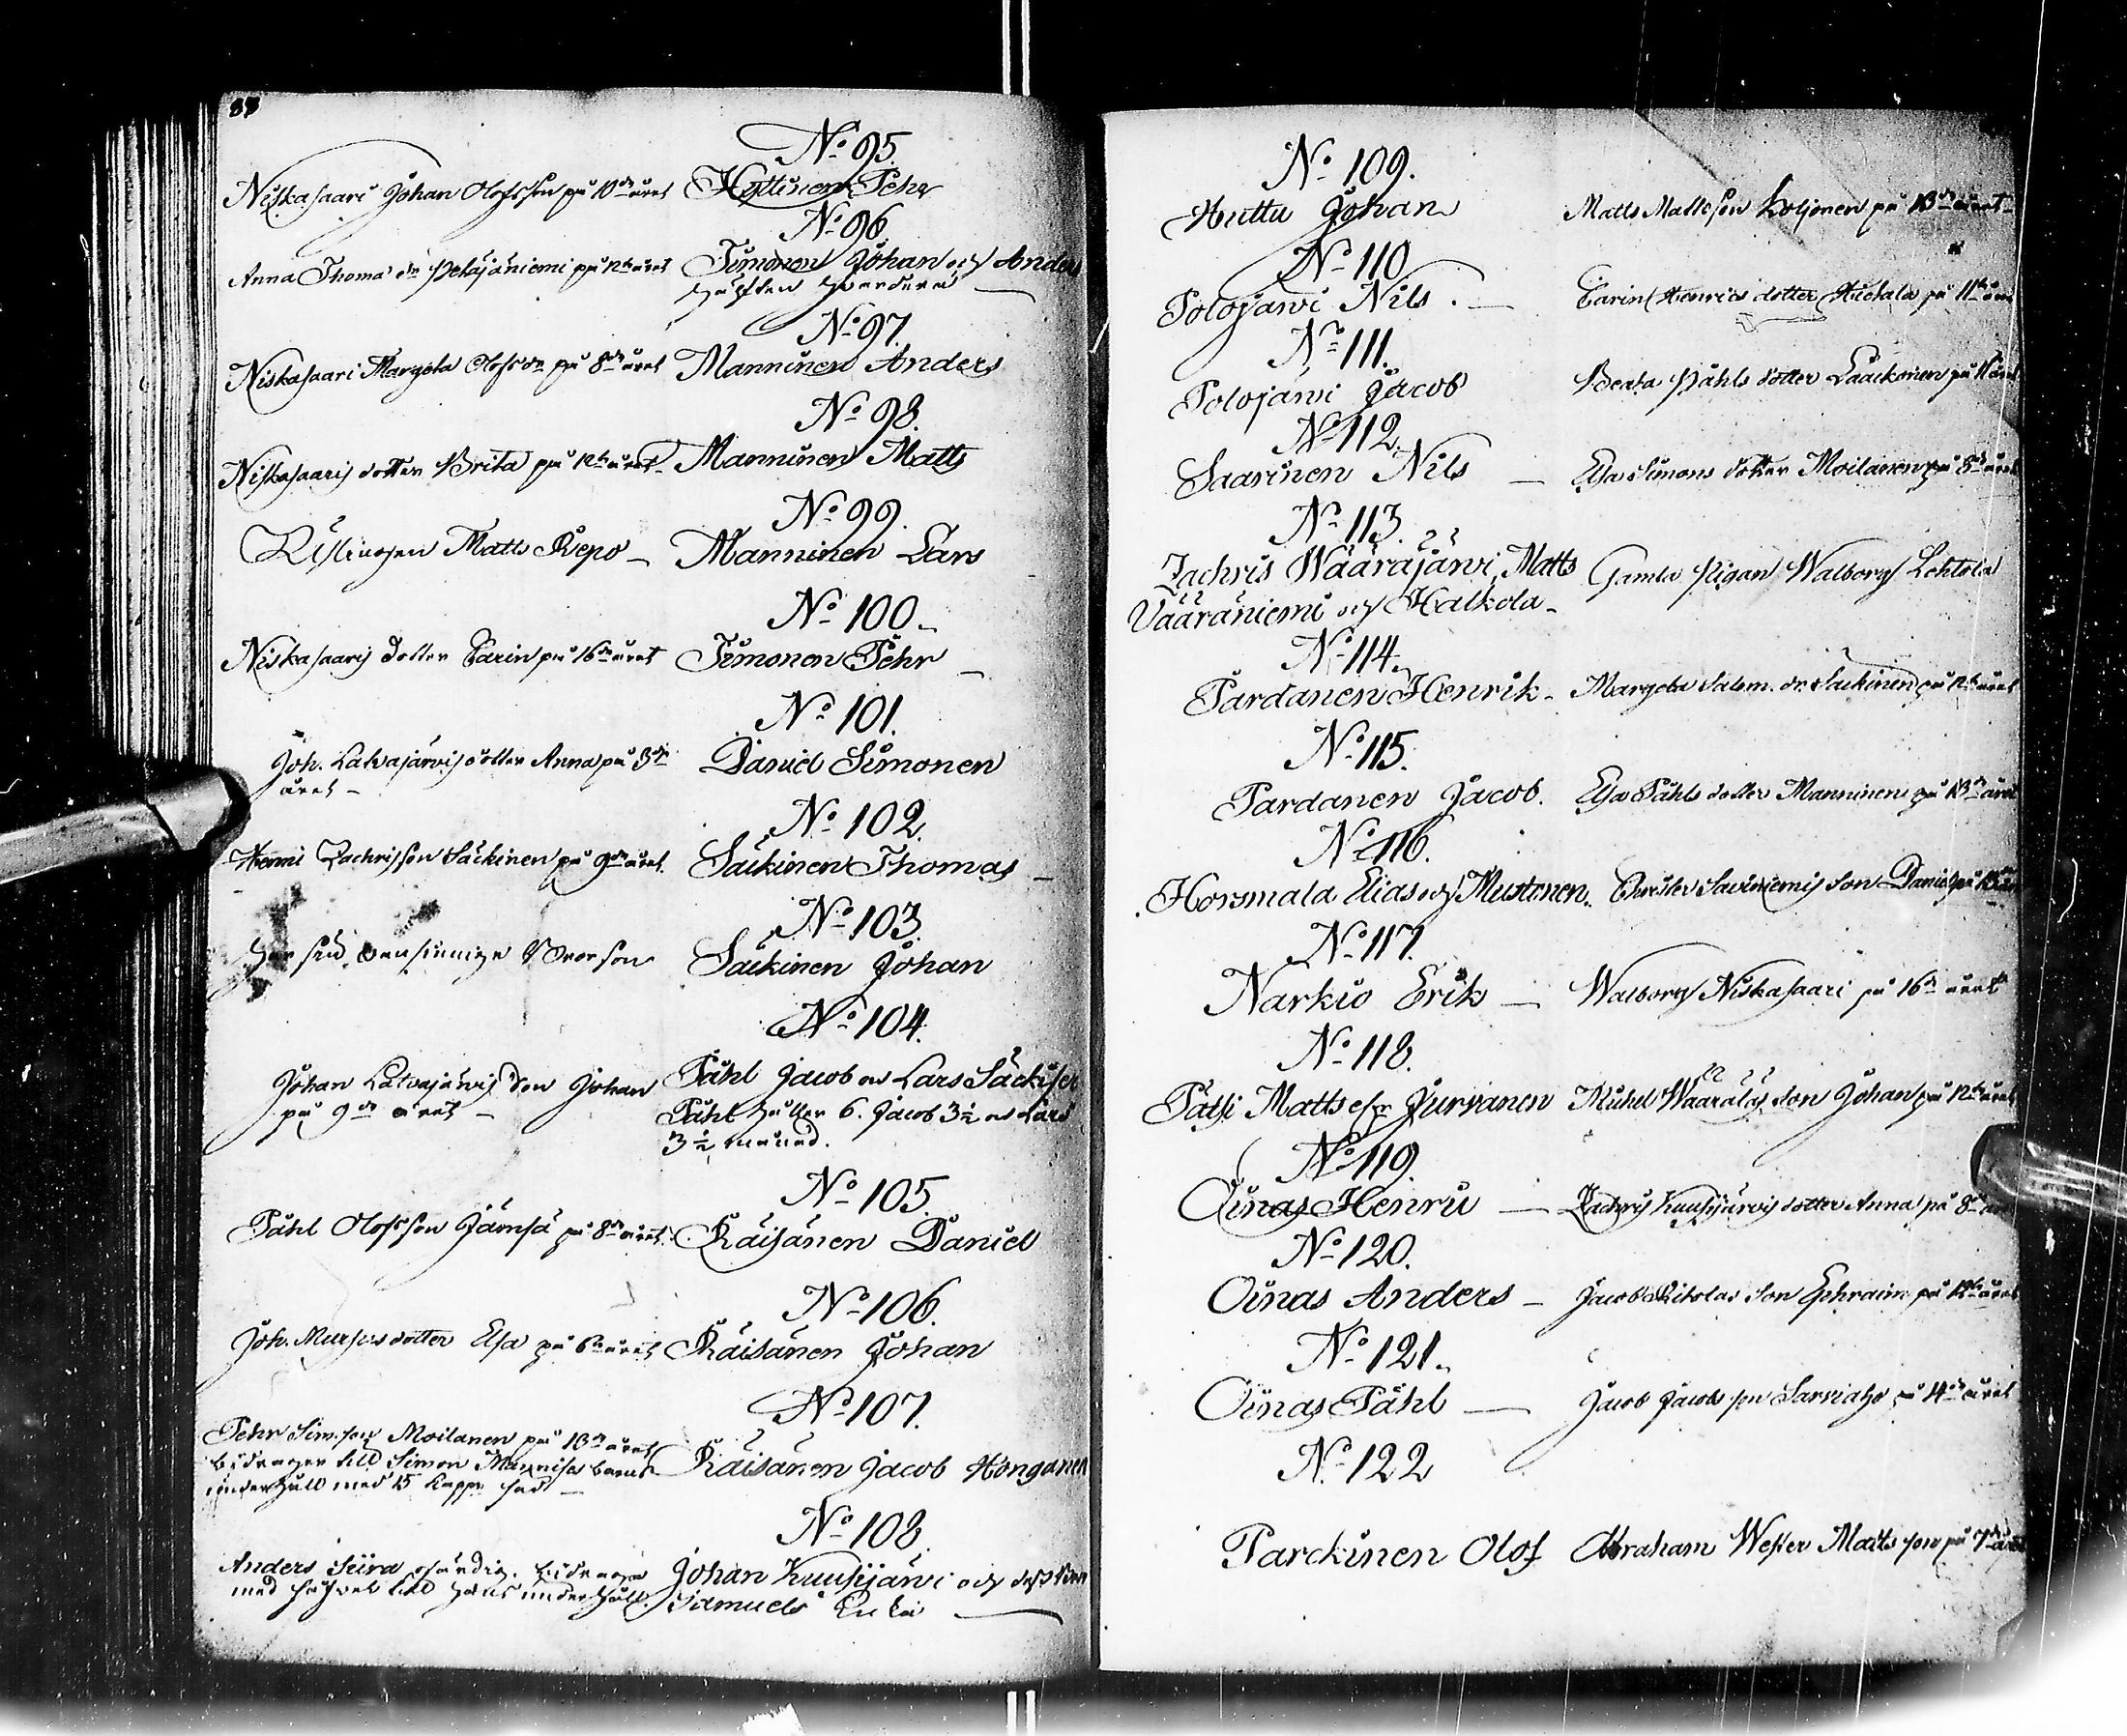 88
No 95.
Niskasaari Johan Olofsson på 10de året Hyttinen Pehr
No 96
Anna Thomas dr Petäjäniemi på 12te året Timonen Johan och Anders
hälften hvardera
No 97.
Niskasaari Margeta Olofs dr på 8de året Manninen Anders
No 98.
Niskasaaris dotter Brita på 12te året Manninen Matts
No 99.
Matts Repo Manninen Lars
No 100.
Niskasaaris dotter Carin på 16de året Timonen Pehr
No 101.
Joh. Latvajärvis dotter Anna på 3de Daniel Simonen
året
No 102.
Henric Zachrisson Säckinen på 9de året. Säckinen Thomas
No 103.
har sin vansinnige Brorson Säckinen Johan
No 104.
Johan Latvajärvis son Johan Påhl Jacob och Lars Säckinen
på 9de året Påhl håller 6. Jacob 3½ och Lars
3½ månad.
No 105.
Påhl Olofsson Jämsä på 8de året. Räisänen Daniel
No 106.
Joh. Mursus dotter Elsa på 6te året Räisänen Johan
No 107.
Pehr Sims son Moilanen på 13de året
bidrager till Simon Mannises barns Räisänen Jacob Honganen
underhåll med 15 kappr säd
No 108.
Anders Siira ofärdig. bidrager Johan Kuusijärvi och dess Bror
med till hans underhåll. Samuels Enka
No 109.
Huttu Johan Matts Matts son Loljonen på 13de året
No 110
Polojärvi Nils. Carin Henrics dotter Huotala på 11te året
No 111.
Polojärvi Jacob Beata Påhls dotter Laackonen på året
No 112.
Saarinen Nils Elsa Simons dotter Moilanen på 8de året
No 113.
Zachris Wäärajärvi, Matts Gamla Pigan Walborg Lehtola
Vääräniemi och Halkola
No 114.
Pardanen Henrik Margeta Salom. dr Säckinen på 12te året
No 115.
Pardanen Jacob. Elsa Påhls dotter Manninen på 13de året
No 116.
Horsmala Elias och Mustonen. Christer Saviniemis son Daniel på
No 117.
Narkio Erik Walborg Niskasaari på 16de året
No 118.
Pätsi Matts Jurvanen Michel Wäärälas son Johan på 12te året
No 119.
Oinas Henric Zachris Kuusijärvis dotter Anna på 8de
No 120.
Oinas Anders Jacob Rikolas son Ephraim på 12te året
No 121.
Oinas Påhl Jacob Jacobs son Sarviaho på 4de året
No 122
Parckinen Olof Abraham Wester Matts son på 7de året